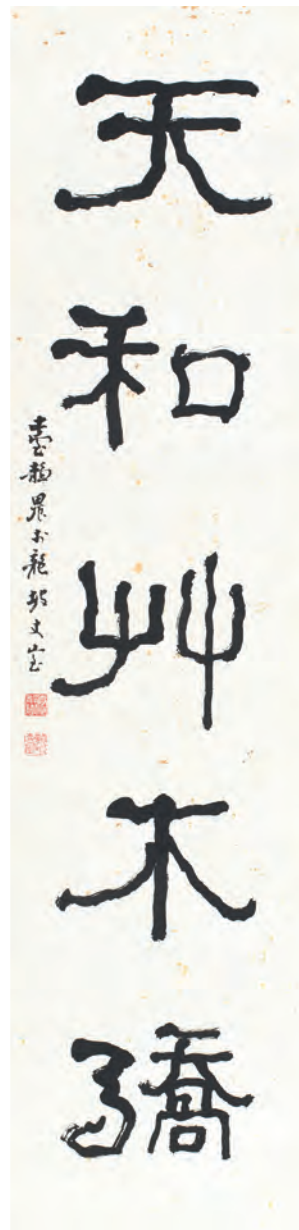 天和艸木驕
臺靜農於龍坡丈室